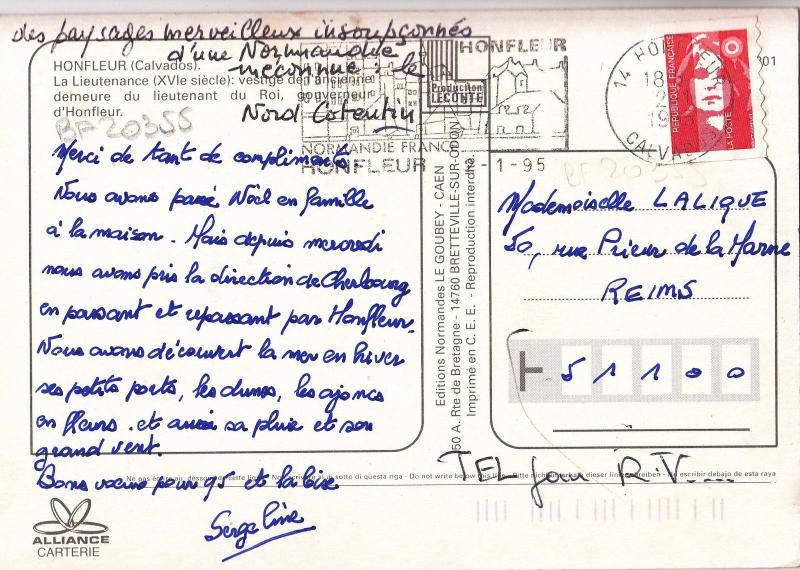 des paysages merveilleux insoupçonnés
d'une Normandie
méconnue : le
Nord Cotentin
HONFLEUR (Calvados).
La Lieutenance (XVIe siècle): vestige de l'ancienne
demeure du lieutenant du Roi, gouverneur
d'Honfleur.
BF 20355
Production
LECONTE
HONFLEUR
NORMANDIE FRANCE
HONFLEUR
-1-95
14 HONFLEUR
18
19
CALVADOS
REPUBLIQUE FRANÇAISE
LA POSTE
301
Merci de tant de compliments
Nous avons passé Noël en famille
à la maison. Mais depuis mercredi
nous avons pris la direction de Cherbourg
en passant et repassant par Honfleur.
Nous avons découvert la mer en hiver
ses petits ports, les dunes, les ajoncs
en fleurs. et aussi sa pluie et son
grand vent.
Bons voeux pour 95 et la bise
Serge line
Editions Normandes LE GOUBEY - CAEN
50 A. Rte de Bretagne - 14760 BRETTEVILLE-SUR-ODON
Imprimé en C. E. E. - Reproduction interdite.
BF 20355
Mademoiselle LALIQUE
50, rue Prieur de la Marne
REIMS
51100
Ne pas écrire au-dessous de cette ligne - Non scrivere al di sotto di questa riga - Do not write below this line - Bitte nicht unterhalb dieser linie schreiben - No escribir debajo de esta raya
TEL pour R.V....
ALLIANCE
CARTERIE